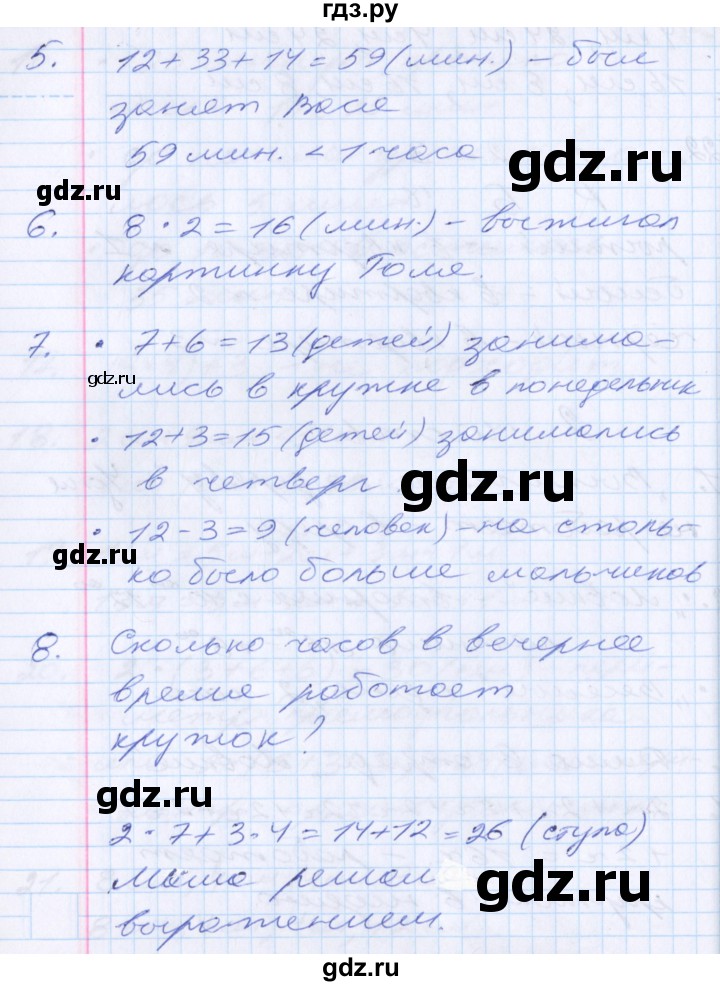 гдз.ру
5. 12 + 33 + 14 = 59 (мин.) – был
занят Вася
59 мин. < 1 часа
gdz.ru
gdz.ru
6. 8 · 2 = 16 (мин.) – выжигал
картинку Толя.
7. • 7 + 6 = 13 (детей) занима-
gdz.ru
лись в кружке в понедельник
• 12 + 3 = 15 (детей) занимались
в четверг.
gdz.ru
• 12 – 3 = 9 (человек) – на столь-
gdz.ru
ко было больше мальчиков
8. Сколько часов в вечернее
время работает
кружок?
gdz.ru
2 · 7 + 3 · 4 = 14 + 12 = 26 (стула)
Миша решал
gdz.ru
выражением.
gdz.ru
gdz.ru